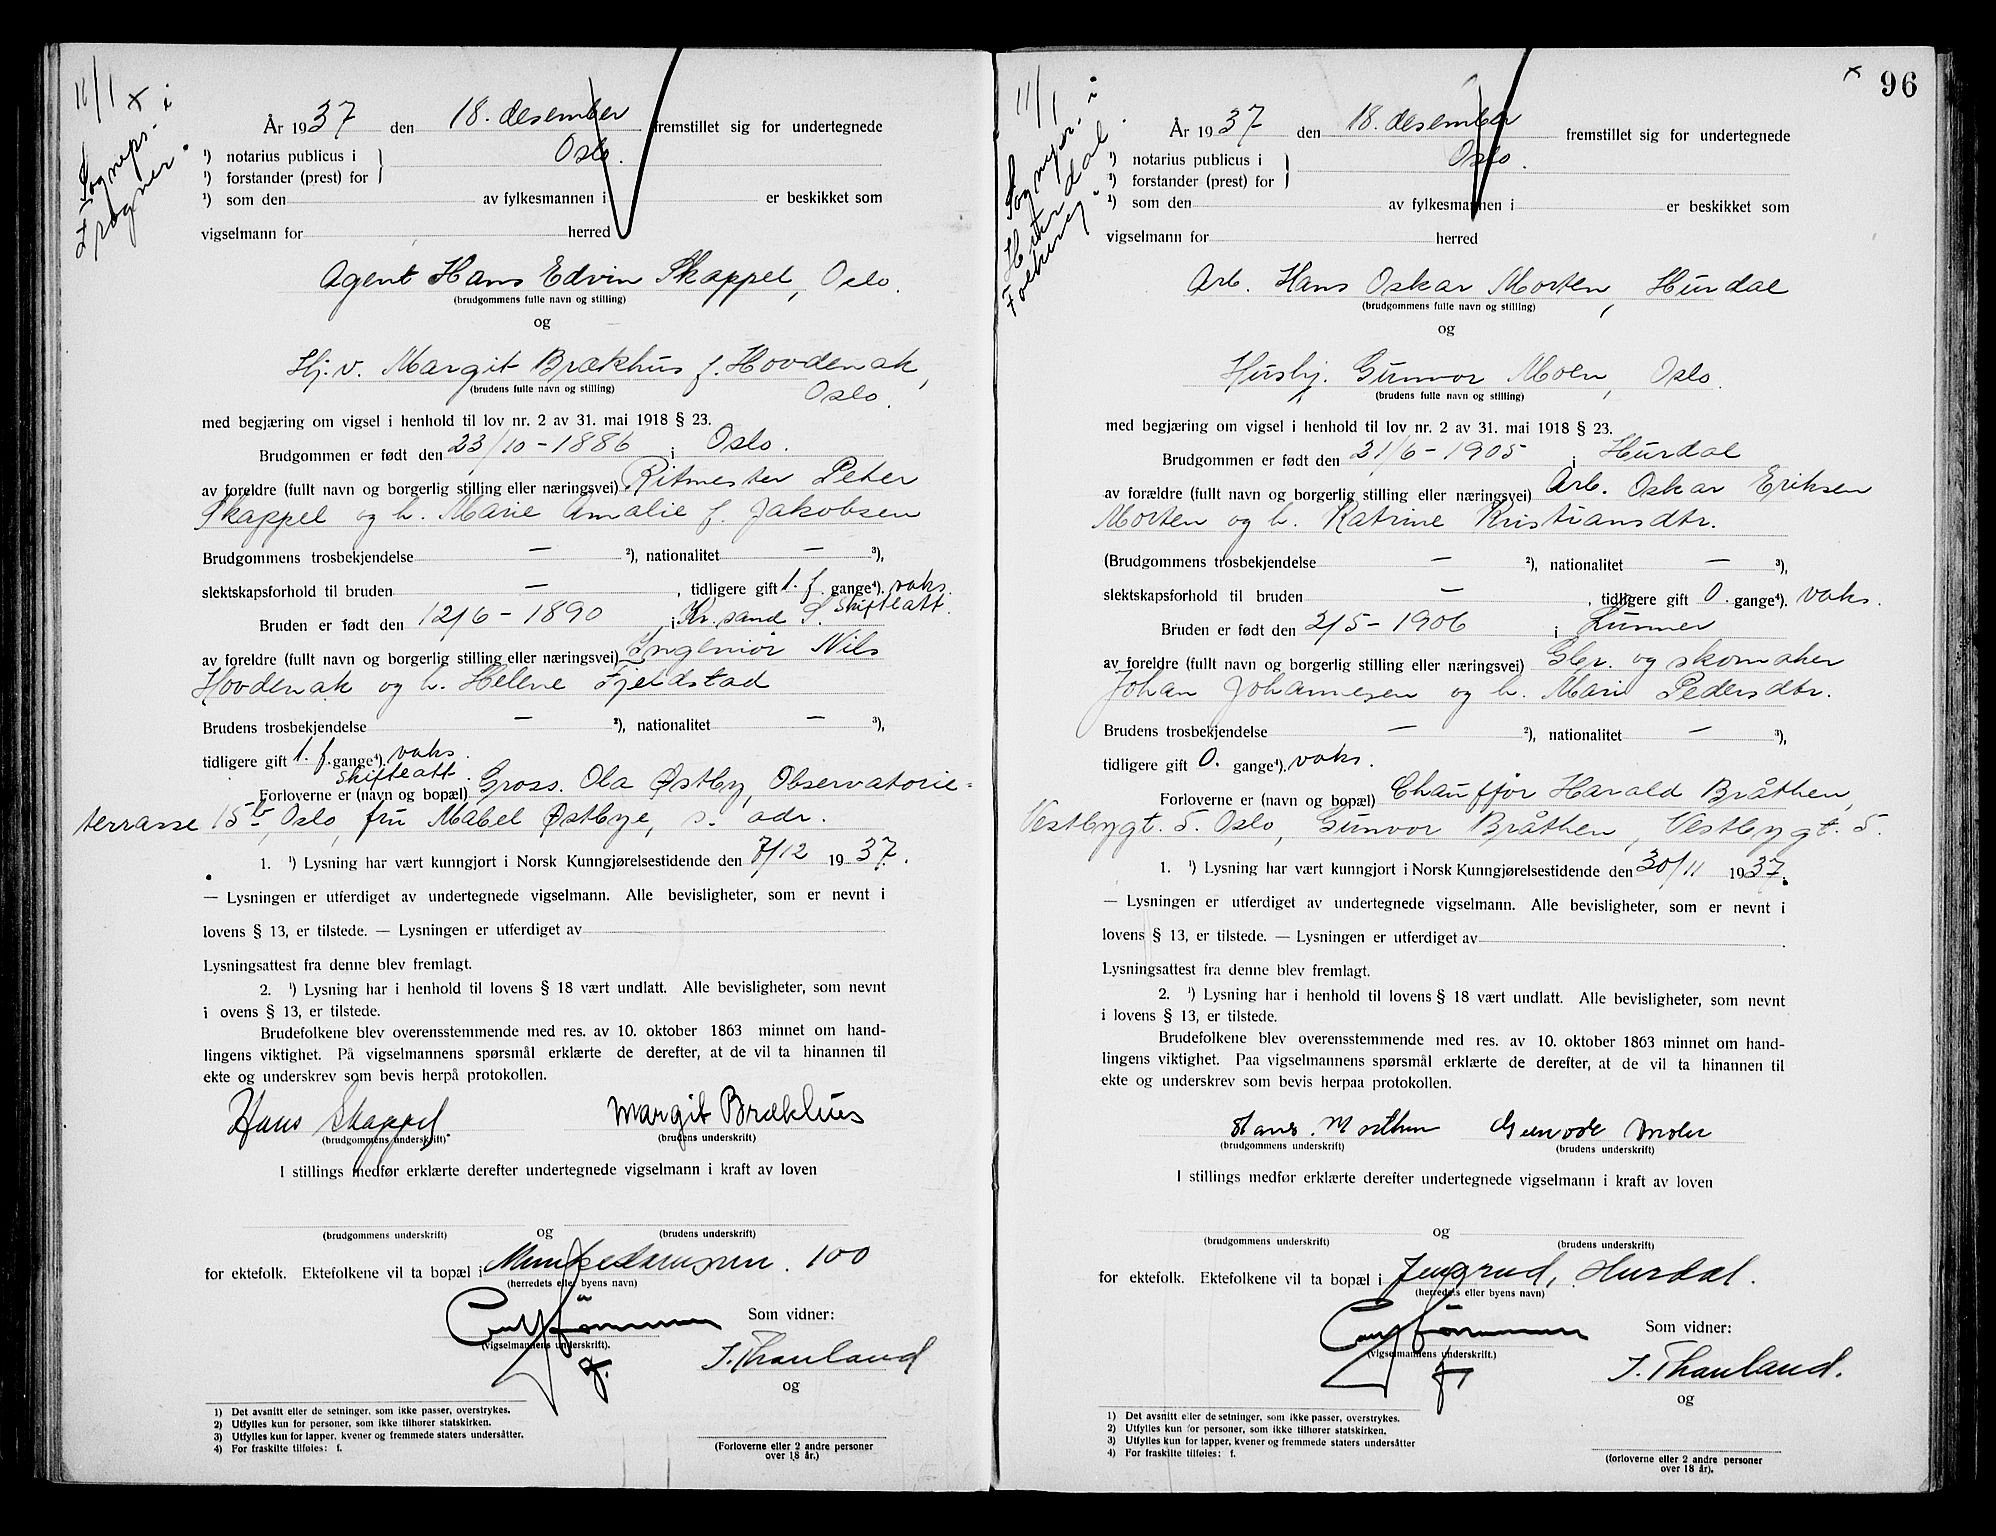 11/1 x
Sogneps. i
Frogner.
År 1937 den 18. desember fremstillet sig for undertegnede
¹) notarius publicus i Oslo.
¹) forstander (prest) for
¹) som den av fylkesmannen i er beskikket som
vigselmann for herred
Agent Hans Edvin Skappel, Oslo.
(brudgommens fulle navn og stilling)
og
Hj. v. Margit Brækhus f. Hovdenak,
(brudens fulle navn og stilling)
Oslo.
med begjæring om vigsel i henhold til lov nr. 2 av 31. mai 1918 § 23.
Brudgommen er født den 23/10 - 1886 i Oslo.
av foreldre (fullt navn og borgerlig stilling eller næringsvei) Ritmester Peter
Skappel og h. Marie Amalie f. Jakobsen
Brudgommens trosbekjendelse — ²), nationalitet — ³),
slektskapsforhold til bruden — , tidligere gift 1. f. gange⁴). vaks.
skifteatt.
Bruden er født den 12/6 - 1890 i Kr.sand S.
av foreldre (fullt navn og borgerlig stilling eller næringsvei) Ingeniør Nils
Hovdenak og h. Helene Fjeldstad
Brudens trosbekjendelse — ²), nationalitet — ³),
tidligere gift 1. f. gange⁴). vaks.
skifteatt.
Forloverne er (navn og bopæl) Gross. Ola Østby, Observatorie=
terrasse 15b, Oslo, fru Mabel Østbye, s. adr.
1. ¹) Lysning har vært kunngjort i Norsk Kunngjørelsestidende den 7/12 1937.
— Lysningen er utferdiget av undertegnede vigselmann. Alle bevisligheter, som er nevnt i
lovens § 13, er tilstede. — Lysningen er utferdiget av
Lysningsattest fra denne blev fremlagt.
2. ¹) Lysning har i henhold til lovens § 18 vært undlatt. Alle bevisligheter, som nevnt
i ovens § 13, er tilstede.
Brudefolkene blev overensstemmende med res. av 10. oktober 1863 minnet om hand-
lingens viktighet. På vigselmannens spørsmål erklærte de derefter, at de vil ta hinannen til
ekte og underskrev som bevis herpå protokollen.
Hans Skappel Margit Brækhus
(brudgommens underskrift) (brudens underskrift)
I stillings medfør erklærte derefter undertegnede vigselmann i kraft av loven
og
(brudgommens underskrift) (brudens underskrift)
for ektefolk. Ektefolkene vil ta bopæl i Munkedamsveien. 100
(herredets eller byens navn)
Som vidner:
(vigselmannens underskrift).
J. Thauland
og
1) Det avsnitt eller de setninger, som ikke passer, overstrykes.
2) Utfylles kun for personer, som ikke tilhører statskirken.
3) Utfylles kun for lapper, kvener og fremmede staters undersåtter.
4) For fraskilte tilføies: f.
(Forloverne eller 2 andre personer
over 18 år.)
x 96
11/1
Sogneps. i
Hurdal
År 1937 den 18. desember fremstillet sig for undertegnede
¹) notarius publicus i Oslo.
¹) forstander (prest) for
¹) som den av fylkesmannen i er beskikket som
vigselmann for herred
Arb. Hans Oskar Morten, Hurdal
(brudgommens fulle navn og stilling)
og
Hushj. Gunvor Moen, Oslo.
(brudens fulle navn og stilling)
med begjæring om vigsel i henhold til lov nr. 2 av 31. mai 1918 § 23.
Brudgommen er født den 21/6 - 1905 i Hurdal
av forældre (fullt navn og borgerlig stilling eller næringsvei) Arb. Oskar Eriksen
Morten og h. Katrine Kristiansdtr.
(Brudgommens trosbekjendelse — ²), nationalitet — ³),
slektskapsforhold til bruden — , tidligere gift 0. gange⁴). vaks.
Bruden er født den 2/5 - 1906 i Lunner
av foreldre (fullt navn og borgerlig stilling eller næringsvei) Gbr. og skomaker
Johan Johannesen og h. Marie Pedersdtr.
Brudens trosbekjendelse — ²), nationalitet — ³),
tidligere gift 0. gange⁴). vaks.
Forloverne er (navn og bopæl) Chauffør Harald Bråthen,
Vestbygt. 5. Oslo, Gunvor Bråthen, Vestbygt. 5.
1. ¹) Lysning har vært kunngjort i Norsk Kunngjørelsestidende den 30/11 1937.
— Lysningen er utferdiget av undertegnede vigselmann. Alle bevisligheter, som er nevnt i
lovens § 13, er tilstede. — Lysningen er utferdiget av
Lysningsattest fra denne blev fremlagt.
2. ¹) Lysning har i henhold til lovens § 18 vært undlatt. Alle bevisligheter, som nevnt
i lovens § 13, er tilstede.
Brudefolkene blev overensstemmende med res. av 10. oktober 1863 minnet om hand-
lingens viktighet. Paa vigselmannens spørsmål erklærte de derefter, at de vil ta hinannen til
ekte og underskrev som bevis herpaa protokollen.
Hans. Morthen Gunvor Moen
(brudgommens underskrift) (brudens underskrift)
I stillings medfør erklærte derefter undertegnede vigselmann i kraft av loven
og
(brudgommens underskrift) (brudens underskrift)
for ektefolk. Ektefolkene vil ta bopæl i Jeugrud, Hurdal.
(herredets eller byens navn)
Som vidner:
(vigselmannens underskrift.)
J. Thauland.
og
1) Det avsnitt eller de setninger, som ikke passer, overstrykes.
2) Utfylles kun for personer, som ikke tilhører statskirken.
3) Utfylles kun for lapper, kvener og fremmede staters undersåtter
4) For fraskilte tilføies: f.
(forloverne eller 2 andre personer
over 18 år).